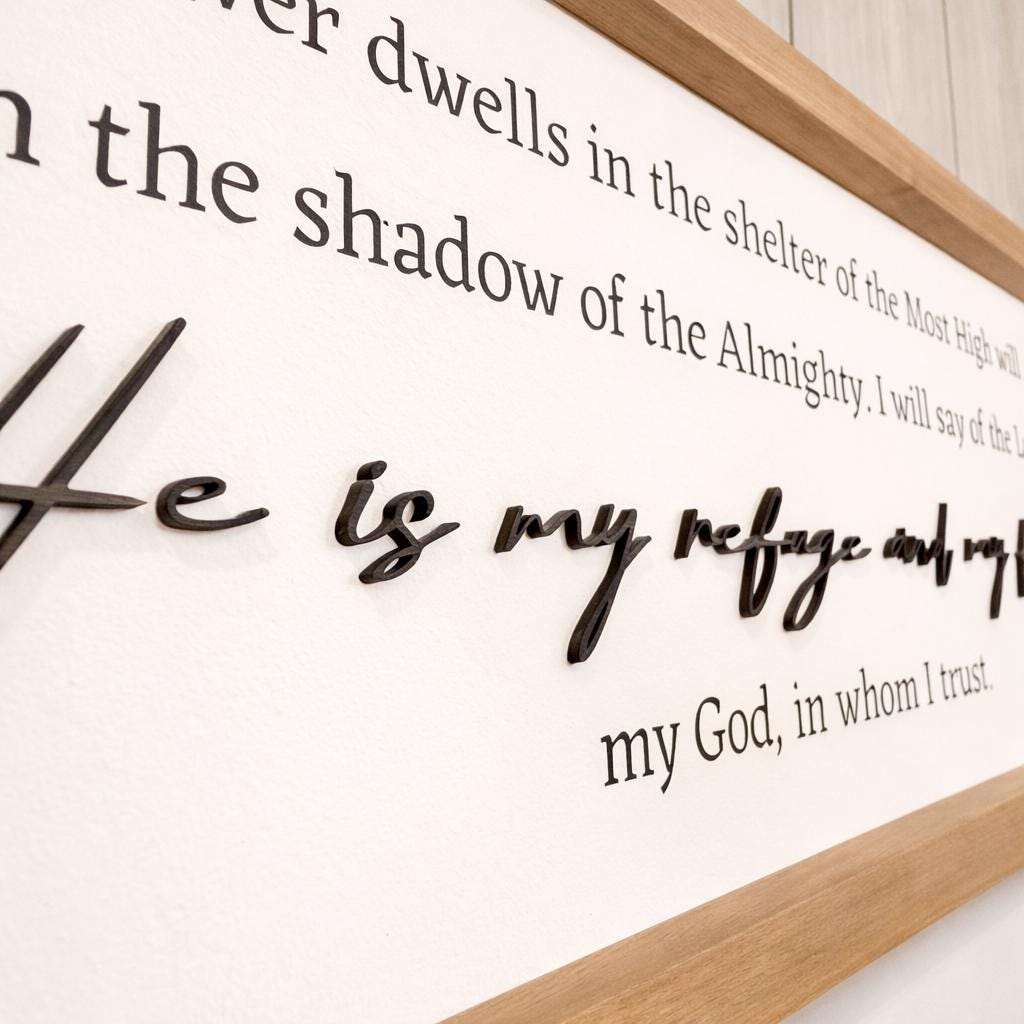 dwells in the shelter of the Most High will
the shadow of the Almighty. I will say of the
He is my refuge and my
my God, in whom I trust.